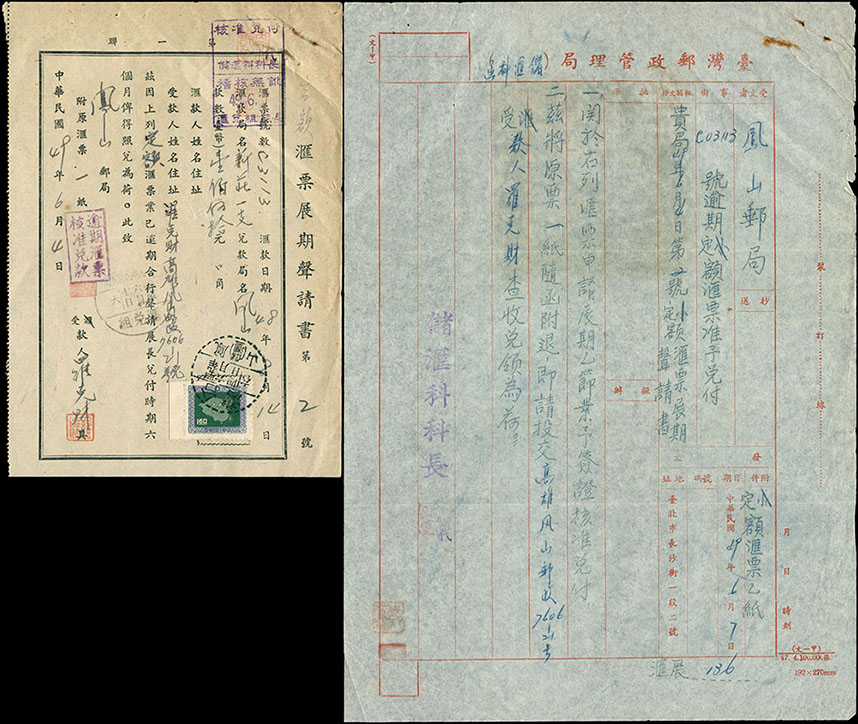 聯一第
核准兌付
儲匯科科長
稽核無訛
滙票展期聲請書 第2號
滙票號數 C03113 滙款日期 48年 月14日
滙款局名 新莊一支 兌款局名 鳳山
款數(臺幣)壹佰伍拾元0角
滙款人姓名住址
受款人姓名住址 羅克財高雄鳳山郵政7606 21號
茲因上列定額滙票業已逾期合行聲請展長兌付時期六
個月俾得照兌為荷。此致
鳳山郵局
附原滙票一紙
中華民國49年6月4日
逾期滙票
核准兌款
滙
受款人羅克財具
臺灣郵政管理局(儲匯科)函
(文一甲)
受文者 鳳山郵局
抄送
事由 C03113號逾期定額滙票准予兌付
相關文件 貴局49年6月4日第2號小額定額滙票展期聲請書
批示
擬辦
發文
附件 小額定額滙票乙紙
日期 中華民國49年6月7日
號碼
地址 臺北市長沙街一段二號
一、關於右列滙票申請展期乙節業予簽證核准兌付
二、茲將原票一紙隨函附退即請投交高雄鳳山郵政7606 21号
受滙款人羅克財查收兌領為荷。
儲滙科科長
裝訂線
月 日 時刻
滙展 136
(文一甲)
47. 4.100,000.張
192×270mm